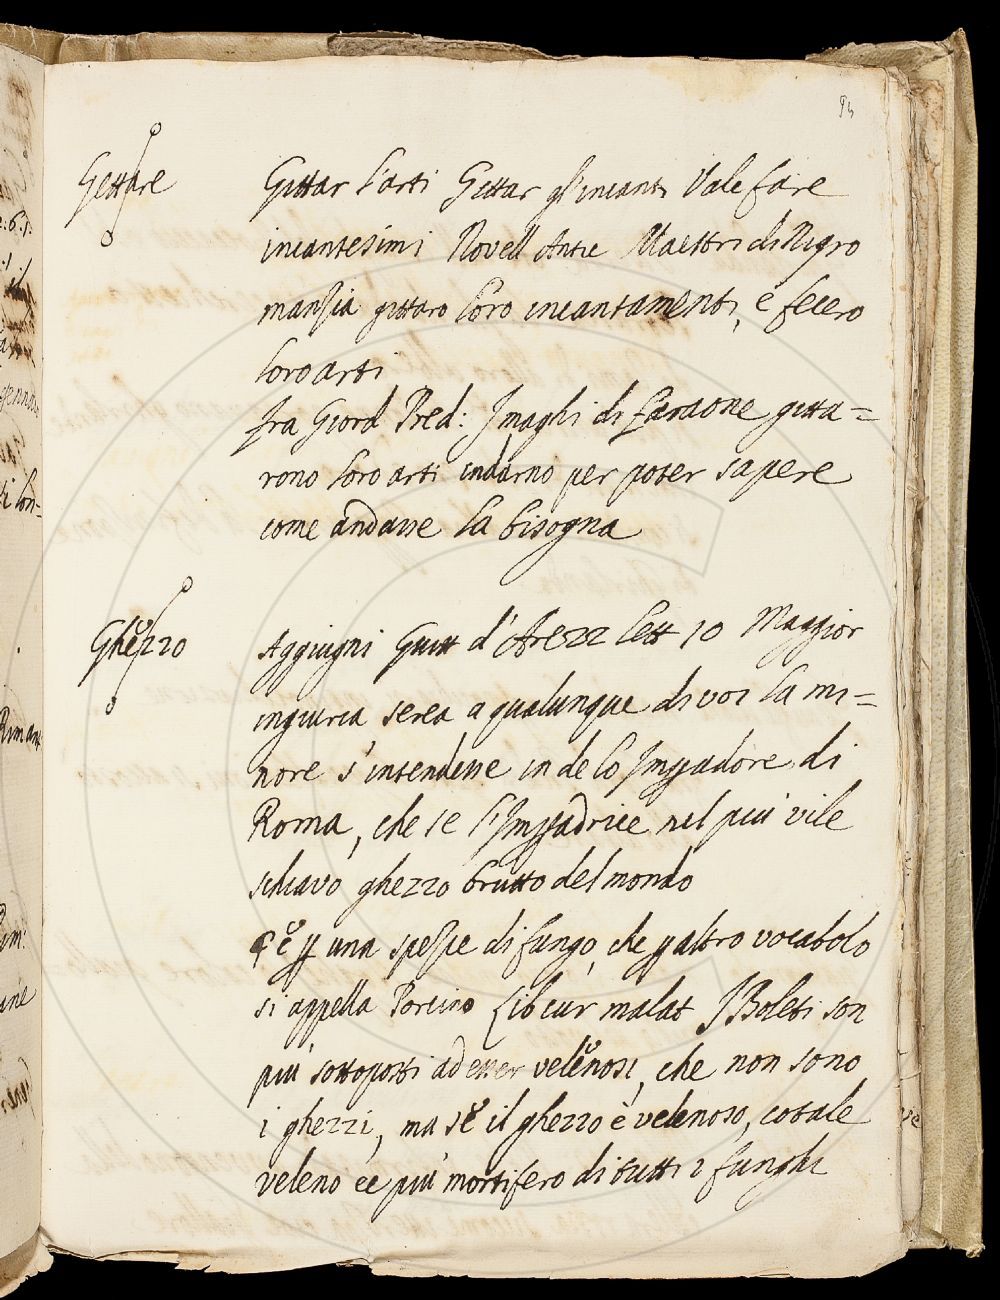 94
Gettare
Gittar l'arti Gittar gl'incanti Vale fare
incantesimi Novell Antic Maestri di Nigro
manzia gittaro loro incantamenti, e fecero
loro arti
fra Giord Pred: I maghi di faraone gitta=
rono loro arti indarno per poter sapere
come andasse la bisogna
Ghezzo
Aggiugni Guitt d'Arezz Lett 10 Maggior
ingiuria serea a qualunque di voi la mi=
nore s'intendesse in de lo Impadore di
Roma, che se l'Impadrice nel piu vile
schiavo ghezzo brutto del mondo
§ è p una spezie di fungo, che p altro vocabolo
si appella Porcino Lib cur malat I Boleti son
piu sottoposti ad esser velenosi, che non sono
i ghezzi, ma se il ghezzo è velenoso, cotale
veleno ee piu mortifero di tutti i funghi